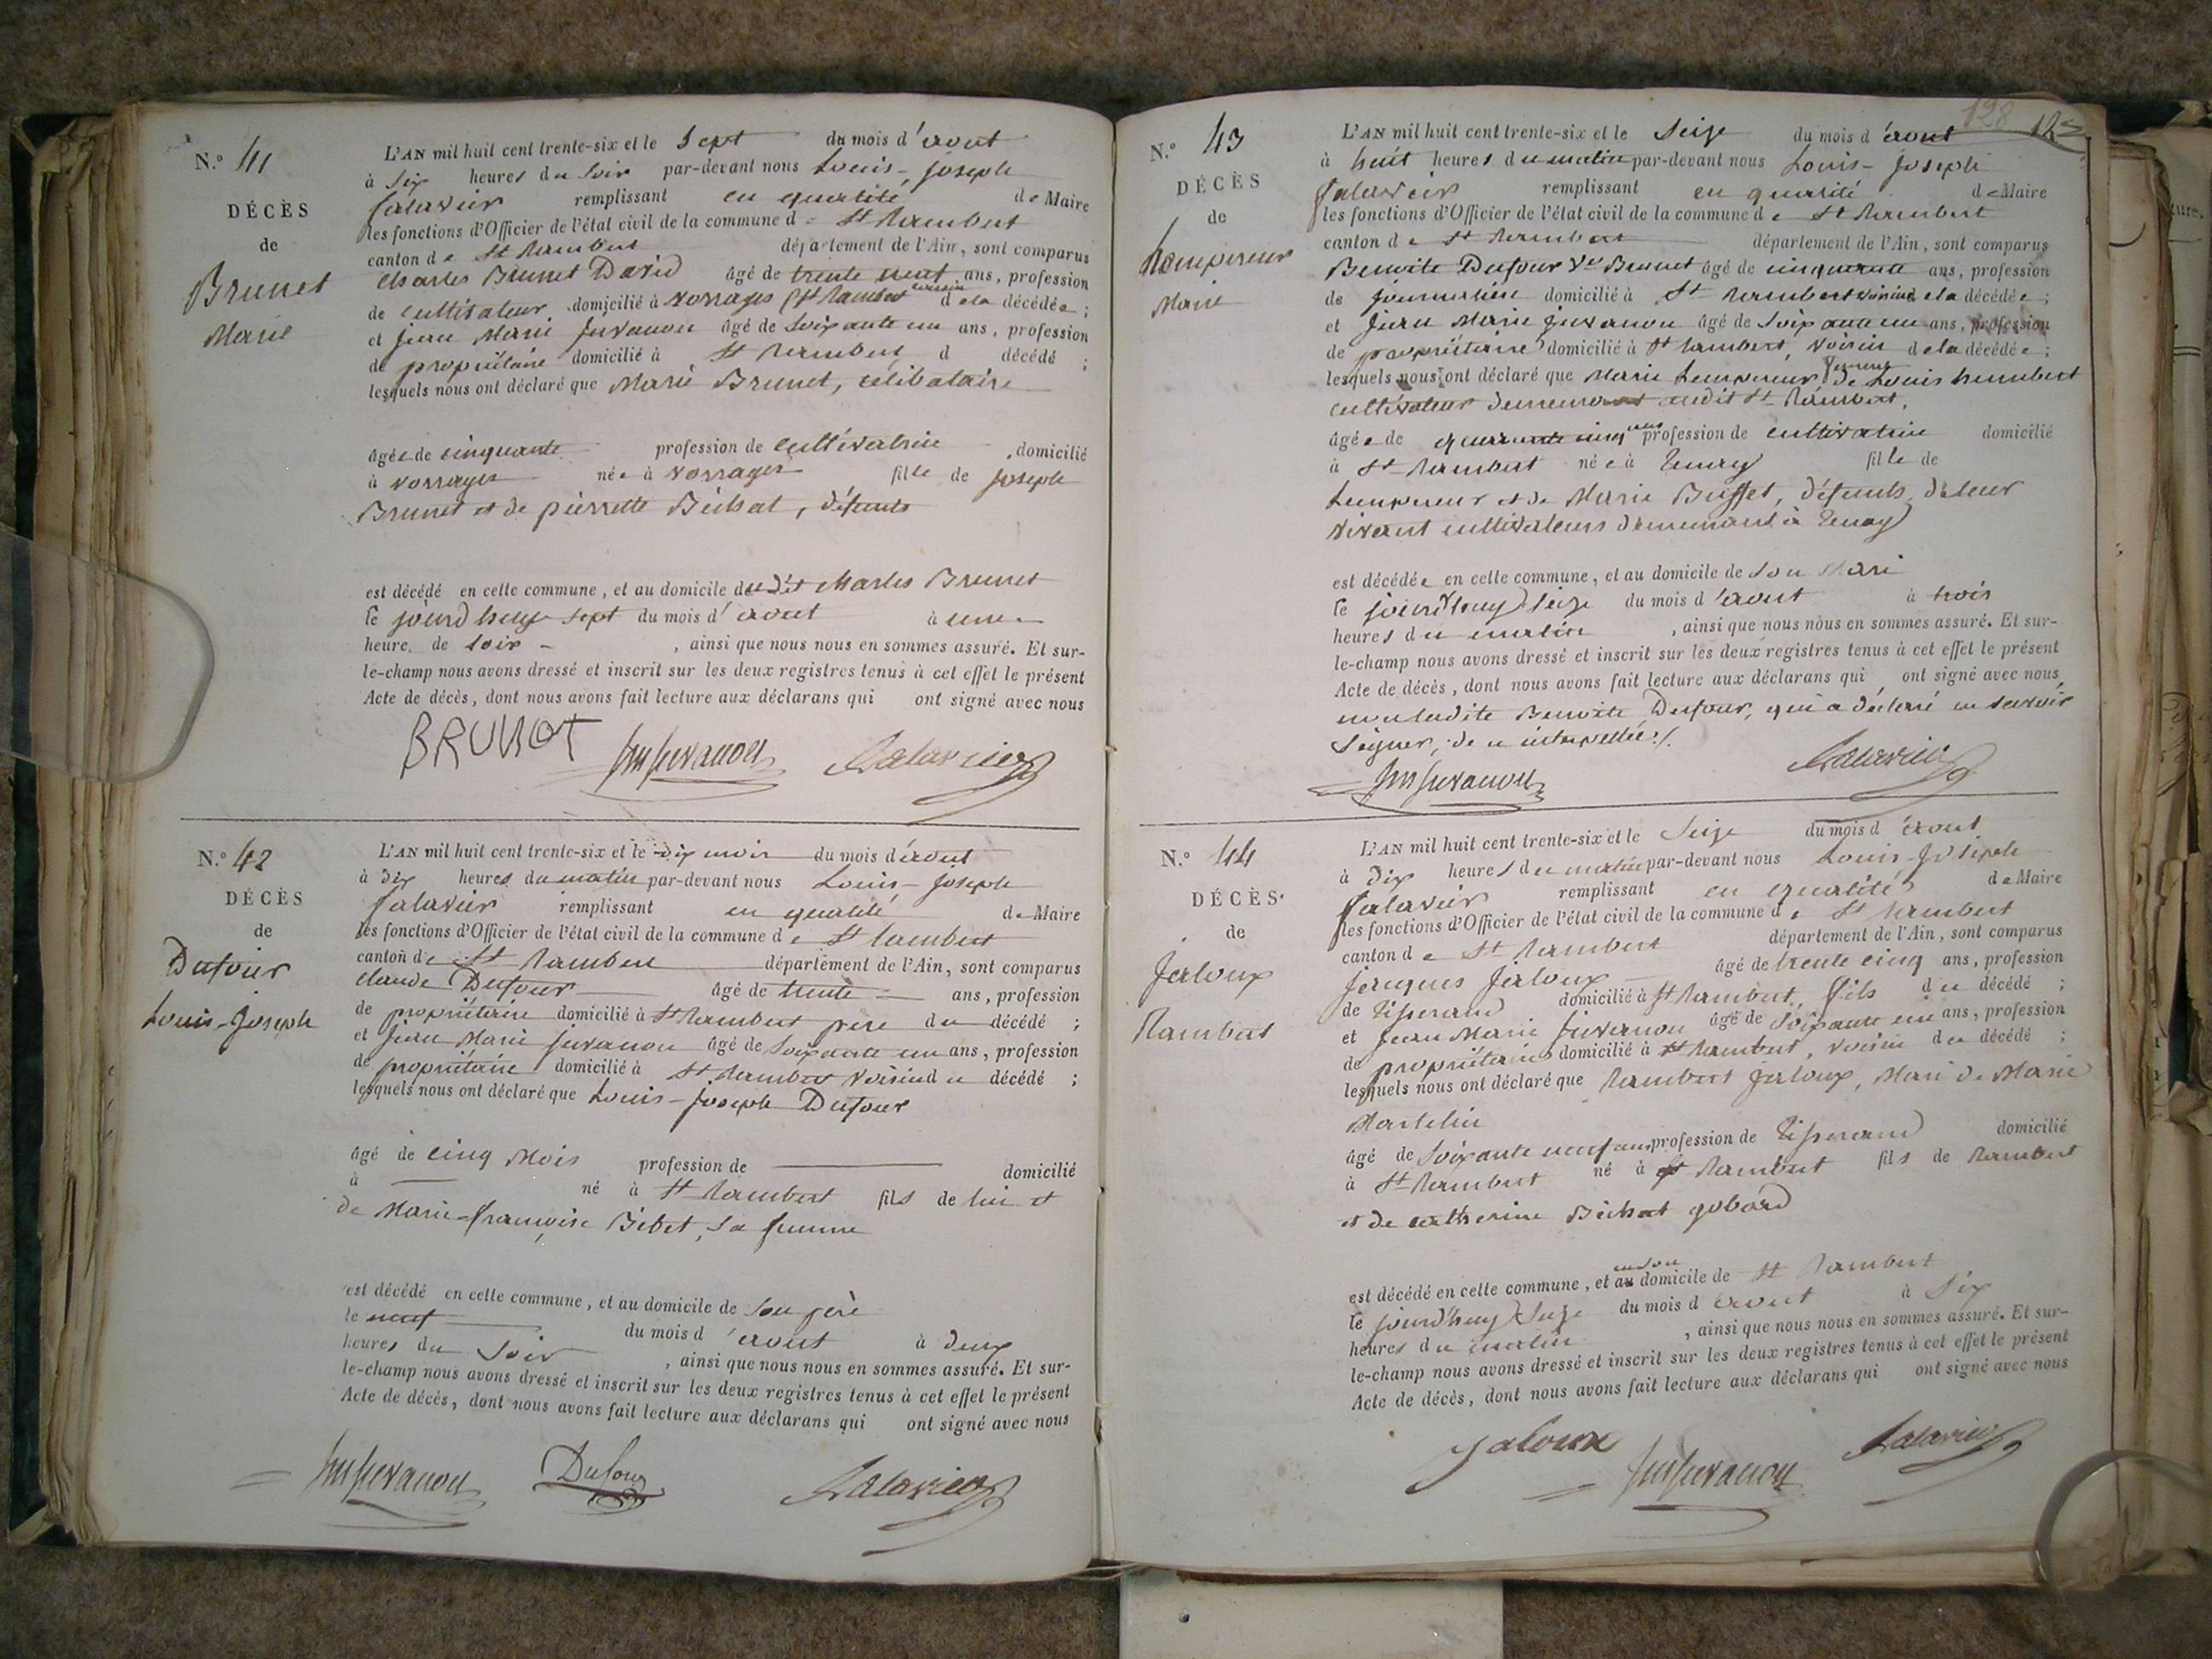 N.° 41
DÉCÈS
de
Brunet
Marie
L'AN mil huit cent trente-six et le Sept du mois d'aout
à Six heures du Soir par-devant nous Louis-Joseph
Salavier remplissant en qualité de Maire
les fonctions d'Officier de l'état civil de la commune de St Rambert
canton de St Rambert département de l'Ain, sont comparus
Charles Brunet David âgé de trente neuf ans, profession
de cultivateur domicilié à Vorrages St Rambert cousin de la décédée ;
et jean Marie juvanon âgé de Soixante un ans, profession
de propriétaire domicilié à St Rambert d décédé ;
lesquels nous ont déclaré que Marie Brunet, célibataire
âgée de cinquante profession de cultivatrice domicilié
à vorrages née à vorrages fille de joseph
Brunet et de pierrette Béchat, défunts
est décédé en cette commune, et au domicile dudit Charles Brunet
le jourd'huy sept du mois d'aout à une
heure de Soir, ainsi que nous nous en sommes assuré. Et sur-
le-champ nous avons dressé et inscrit sur les deux registres tenus à cet effet le présent
Acte de décès, dont nous avons fait lecture aux déclarans qui ont signé avec nous
BRUNOT Jm Juvanon Salavier
N.° 42
DÉCÈS
de
Dufour
Louis-Joseph
L'AN mil huit cent trente-six et le dix du mois d'aout
à dix heures du matin par-devant nous Louis-Joseph
Salavier remplissant en qualité de Maire
les fonctions d'Officier de l'état civil de la commune de St Rambert
canton de St Rambert département de l'Ain, sont comparus
claude Dufour âgé de trente ans, profession
de propriétaire domicilié à St Rambert père du décédé ;
et jean Marie juvanon âgé de Soixante un ans, profession
de propriétaire domicilié à St Rambert voisin du décédé ;
lesquels nous ont déclaré que Louis-Joseph Dufour
âgé de cinq Mois profession de domicilié
à né à St Rambert fils de lui et
de Marie-françoise Bébet, Sa femme
est décédé en cette commune, et au domicile de Son père
le neuf du mois d'aout à deux
heures du Soir, ainsi que nous nous en sommes assuré. Et sur-
le-champ nous avons dressé et inscrit sur les deux registres tenus à cet effet le présent
Acte de décès, dont nous avons fait lecture aux déclarans qui ont signé avec nous
Jm Juvanon Dufour Salavier
128
N.° 43
DÉCÈS
de
Lempereur
Marie
L'AN mil huit cent trente-six et le Seize du mois d'aout
à huit heures du matin par-devant nous Louis-Joseph
Salavier remplissant en qualité de Maire
les fonctions d'Officier de l'état civil de la commune de St Rambert
canton de St Rambert département de l'Ain, sont comparus
Benoite Dufour Ve Brunet âgé de cinquante ans, profession
de journalière domicilié à St Rambert voisine de la décédée ;
et jean Marie juvanon âgé de Soixante un ans, profession
de propriétaire domicilié à St Rambert, voisin de la décédée ;
lesquels nous ont déclaré que Marie Lempereur, femme de Louis humbert
cultivateur demeurant audit St Rambert,
âgée de quarante cinq ans profession de cultivatrice domicilié
à St Rambert née à Tenay fille de
Lempereur et de Marie Buffet, défunts, de leur
vivant cultivateurs demeurant à Tenay
est décédée en cette commune, et au domicile de Son Mari
le jourd'huy Seize du mois d'aout à trois
heures du matin, ainsi que nous nous en sommes assuré. Et sur-
le-champ nous avons dressé et inscrit sur les deux registres tenus à cet effet le présent
Acte de décès, dont nous avons fait lecture aux déclarans qui ont signé avec nous,
non ladite Benoite Dufour, qui a déclaré ne savoir
Signer, de ce interpellée ./.
Jm Juvanon Salavier
N.° 44
DÉCÈS
de
Jaloux
Rambert
L'AN mil huit cent trente-six et le Seize du mois d'aout
à dix heures du matin par-devant nous Louis-Joseph
Salavier remplissant en qualité de Maire
les fonctions d'Officier de l'état civil de la commune de St Rambert
canton de St Rambert département de l'Ain, sont comparus
jacques Jaloux âgé de trente cinq ans, profession
de Tisserand domicilié à St Rambert, fils du décédé ;
et jean Marie juvanon âgé de Soixante un ans, profession
de propriétaire domicilié à St Rambert, voisin du décédé ;
lesquels nous ont déclaré que Rambert Jaloux, Mari de Marie
Martelin
âgé de Soixante neuf ans profession de Tisserand domicilié
à St Rambert né à St Rambert fils de Rambert
et de catherine Béchat gobard
est décédé en cette commune, et en son domicile de St Rambert
le jourd'huy Seize du mois d'aout à Six
heures du matin, ainsi que nous nous en sommes assuré. Et sur-
le-champ nous avons dressé et inscrit sur les deux registres tenus à cet effet le présent
Acte de décès, dont nous avons fait lecture aux déclarans qui ont signé avec nous
jaloux Jm Juvanon Salavier